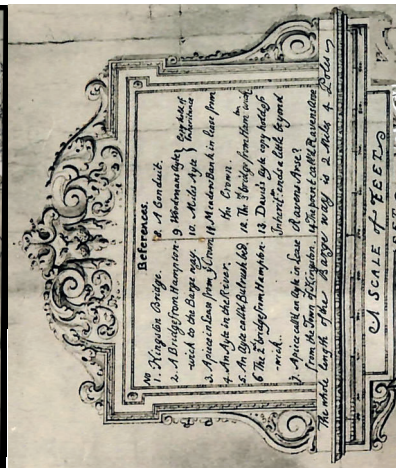 References.
No
1. Kingston Bridge.
2. A Bridge from Hampton-
wick to the Barge way.
3. A piece in Lease from ye Crown
4. An Ayte in the River.
5. An Ayte calld Balmush bed.
6. The 2d bridge from Hampton-
wick.
7. A piece calld an Ayte in Lease
from the Town of Kingston.
8. A Conduit.
9. Woodman Ayte } Copy hold of
10. Miles Ayte } Inheritance
11. Meadow Bank in lease from
the Crown.
12. The 3d bridge from Ham: wick
13. David's Ayte copy hold of
Inherit: ends a little beyond
Ravens Arse?
14. The point calld Ravens Arse
The whole length of the Barge way is 2 Miles 4 Poles
A SCALE of FEET